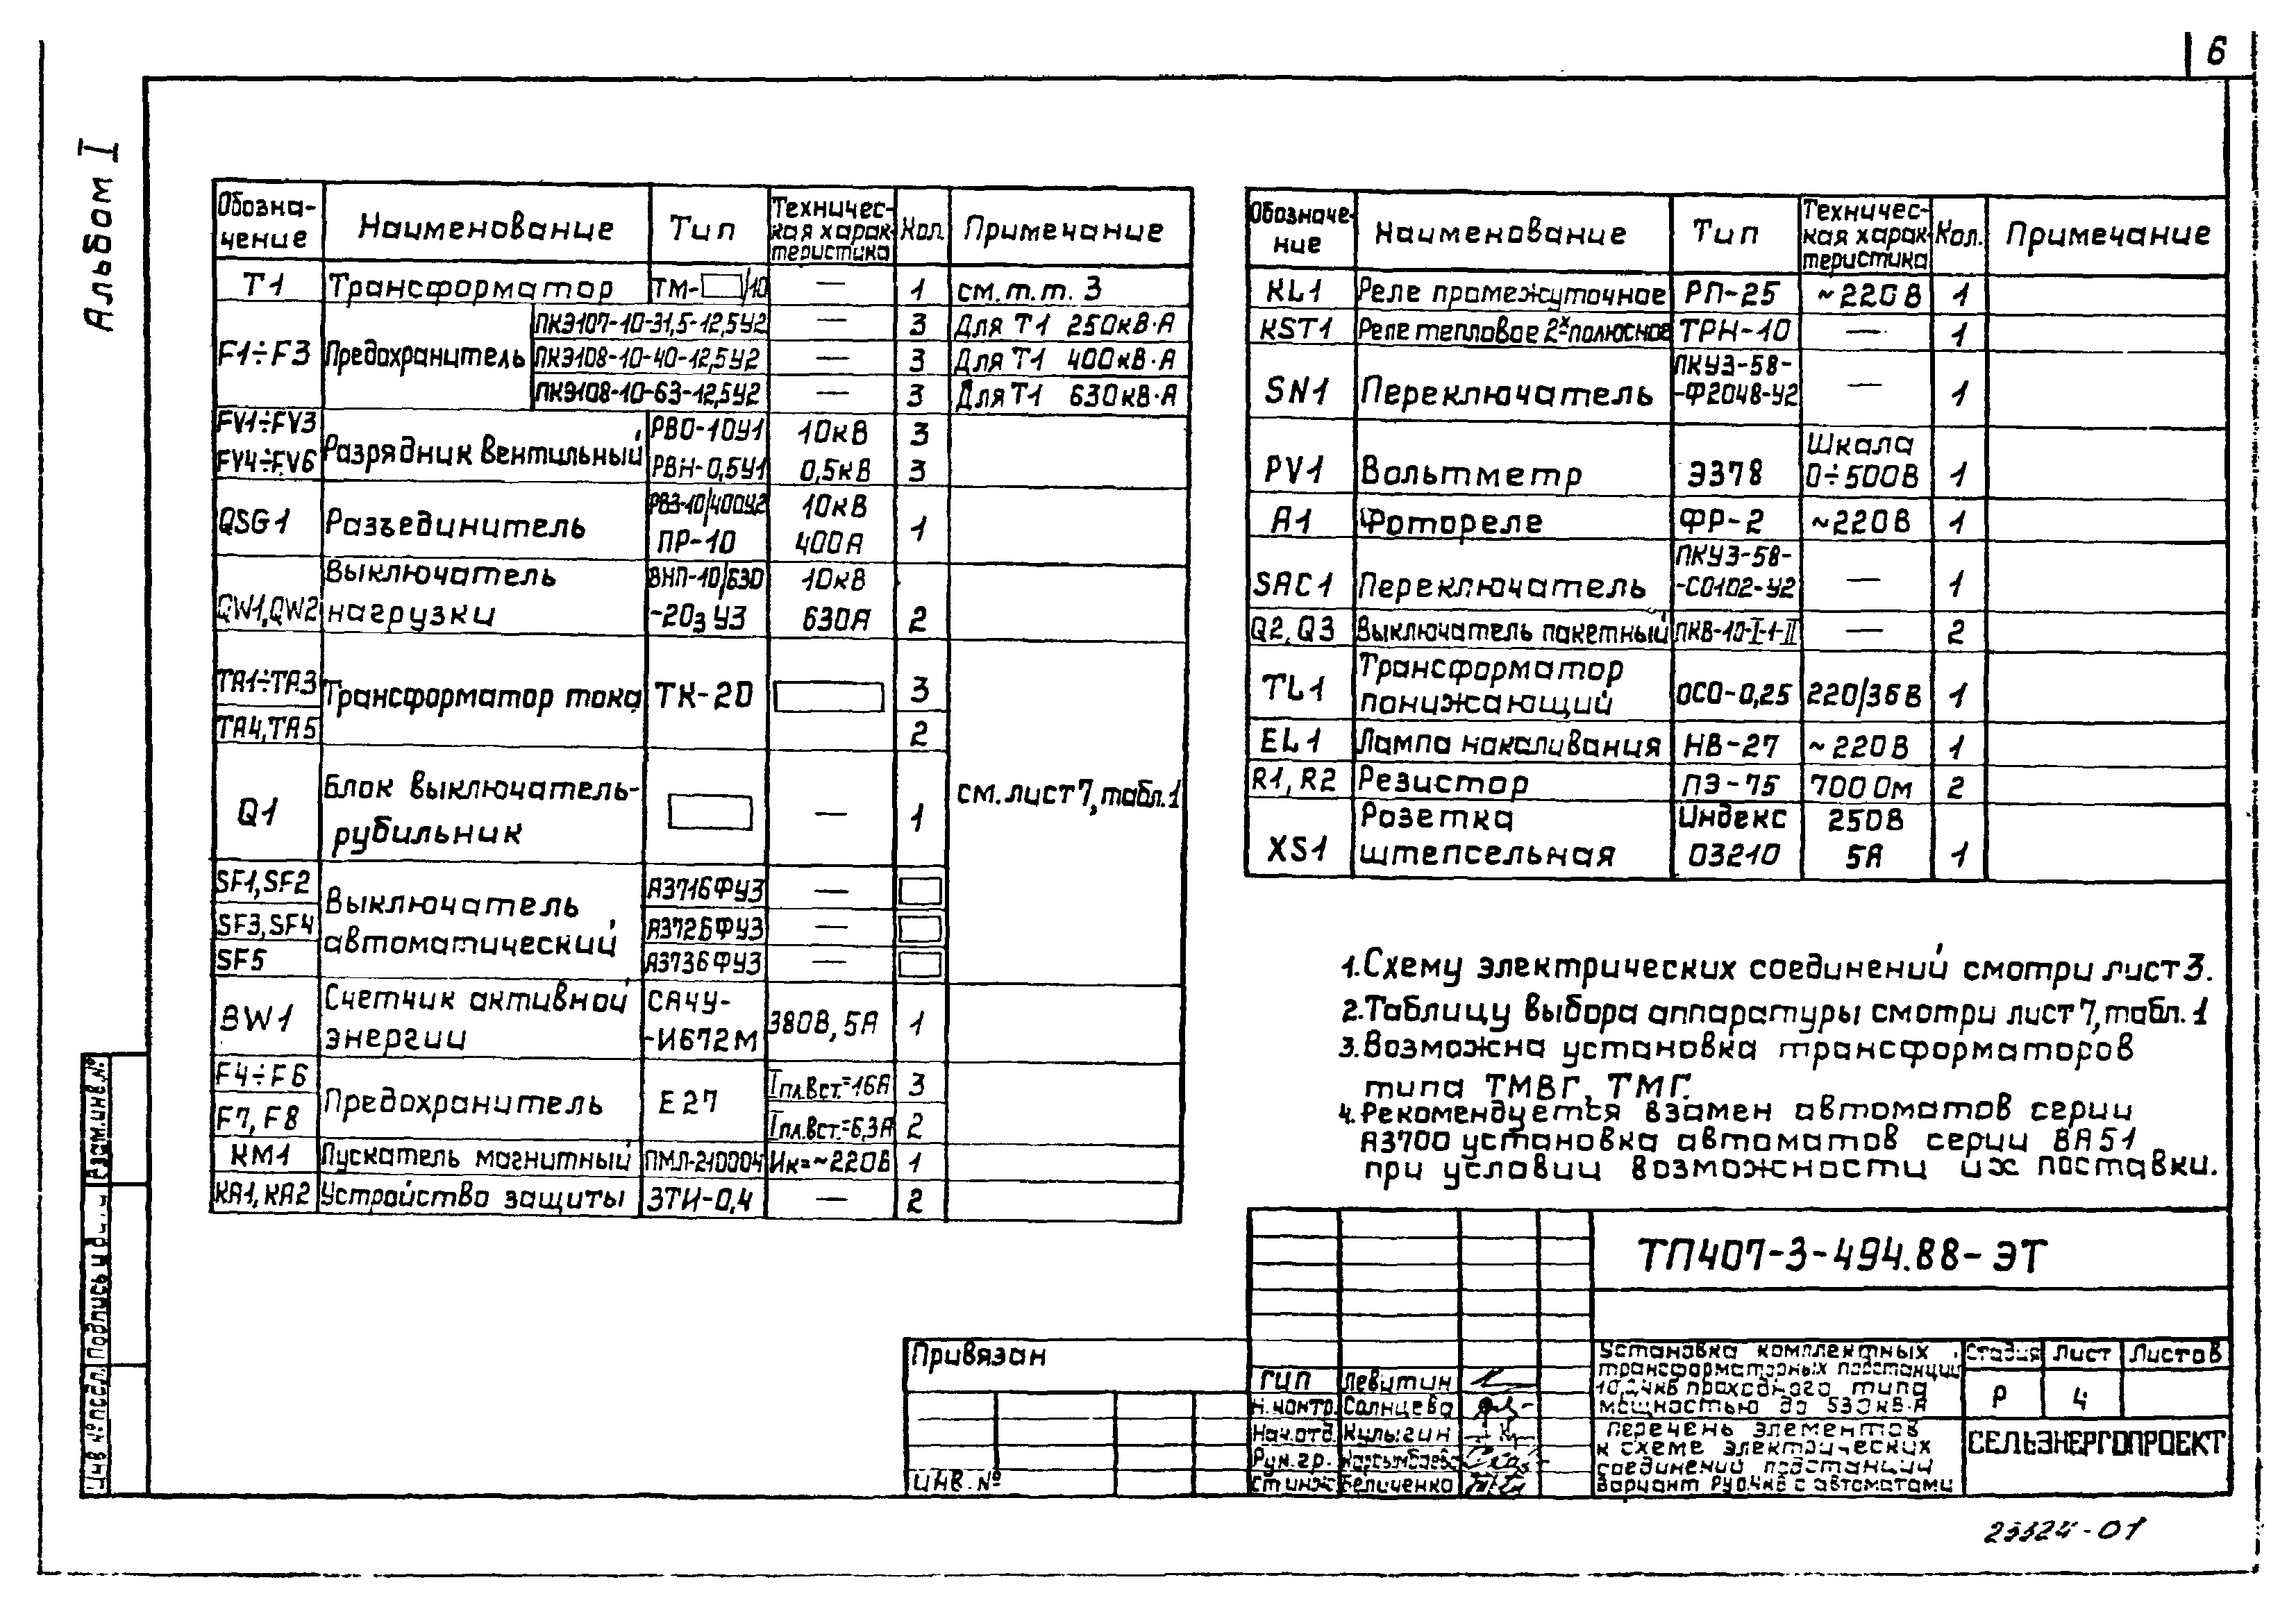 6
Альбом I
Обозна-
чение
Наименование
Тип
Техничес-
кая харак-
теристика
Кол.
Примечание
Т1
Трансформатор
ТМ-▭/10
—
1
см.т.т. 3
F1÷F3
Предохранитель
ПКЭ107-10-31,5-12,5У2
—
3
Для Т1 250кВ·А
ПКЭ108-10-40-12,5У2
—
3
Для Т1 400кВ·А
ПКЭ108-10-63-12,5У2
—
3
Для Т1 630кВ·А
FV1÷FV3
Разрядник вентильный
РВО-10У1
10кВ
3
FV4÷FV6
РВН-0,5У1
0,5кВ
3
QSG1
Разъединитель
РВЗ-10/400У2
10кВ
1
ПР-10
400А
QW1,QW2
Выключатель
нагрузки
ВНП-10/630
-20з У3
10кВ
630А
2
ТА1÷ТА3
Трансформатор тока
ТК-20
3
ТА4,ТА5
2
Q1
Блок выключатель-
рубильник
—
1
см.лист7,табл.1
SF1,SF2
Выключатель
автоматический
А3716ФУ3
—
SF3,SF4
А3726ФУ3
—
SF5
А3736ФУ3
—
BW1
Счетчик активной
энергии
СА4У-
-И672М
380В, 5А
1
F4÷F6
Предохранитель
Е27
Iпл.вст.=16А
3
F7, F8
Iпл.вст.=6,3А
2
КМ1
Пускатель магнитный
ПМЛ-210004
Ик=~220В
1
КА1, КА2
Устройство защиты
ЗТИ-0,4
—
2
Обозначе-
ние
Наименование
Тип
Техничес-
кая харак-
теристика
Кол.
Примечание
KL1
Реле промежуточное
РП-25
~220В
1
KST1
Реле тепловое 2х полюсное
ТРН-10
—
1
SN1
Переключатель
ПКУ3-58-
-Ф2048-У2
—
1
PV1
Вольтметр
Э378
Шкала
0÷500В
1
А1
Фотореле
ФР-2
~220В
1
SAC1
Переключатель
ПКУ3-58-
-С0102-У2
—
1
Q2, Q3
Выключатель пакетный
ПКВ-10-I-1-II
—
2
TL1
Трансформатор
понижающий
ОСО-0,25
220/36В
1
EL1
Лампа накаливания
НВ-27
~220В
1
R1, R2
Резистор
ПЭ-75
700 Ом
2
XS1
Розетка
штепсельная
Индекс
03210
250В
5А
1
1.Схему электрических соединений смотри лист 3.
2.Таблицу выбора аппаратуры смотри лист 7,табл.1
3.Возможна установка трансформаторов
типа ТМВГ, ТМГ.
4.Рекомендуется взамен автоматов серии
А3700 установка автоматов серии ВА51
при условии возможности их поставки.
ТП407-3-494.88-ЭТ
Привязан
ИНВ.№
ГИП
Левитин
Н.контр.
Солнцева
Нач.отд.
Кулыгин
Рук.гр.
Ст.инж.
Беличенко
Установка комплектных
трансформаторных подстанций
10/0,4кВ проходного типа
мощностью до 630кВ·А
Стадия
Лист
Листов
Р
4
Перечень элементов
к схеме электрических
соединений подстанций
Вариант РУ0,4кВ с автоматами
СЕЛЬЭНЕРГОПРОЕКТ
Взам.инв.№
Подпись и
Инв.№ подл.
23324-01